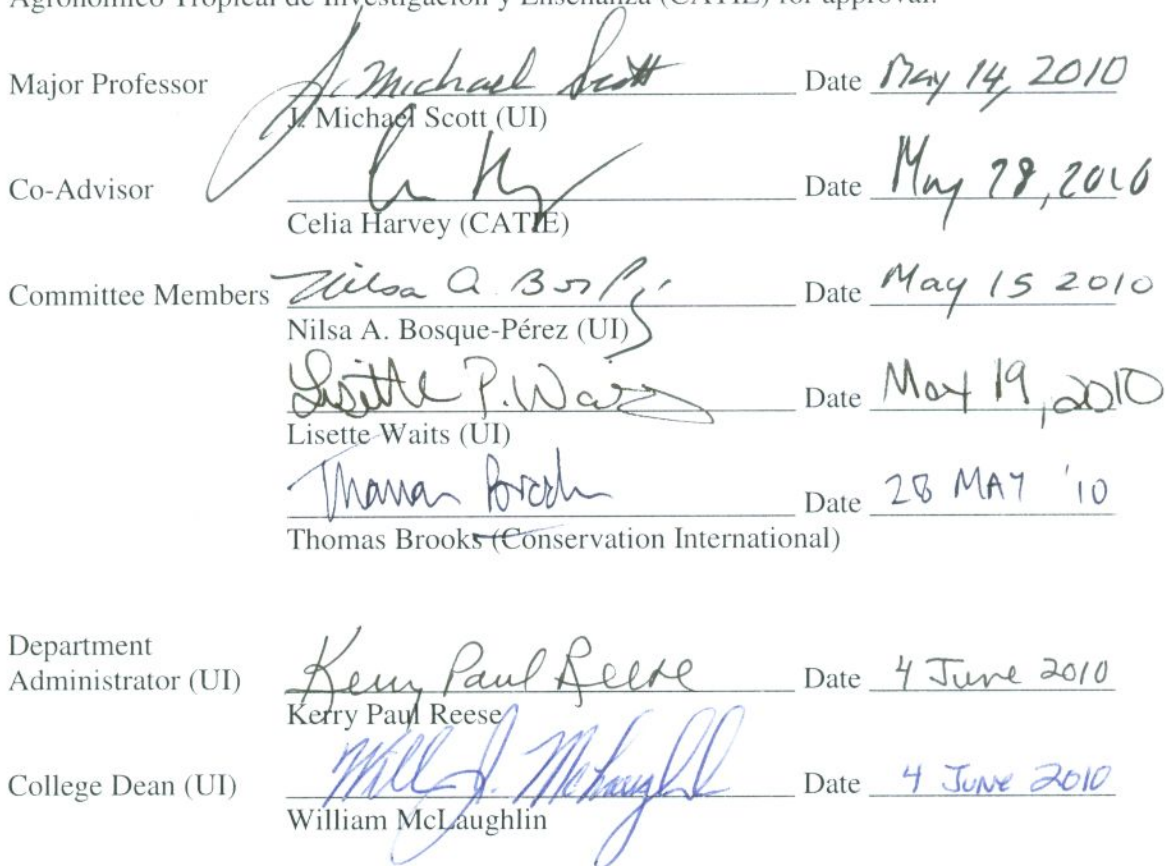 Agronómico Tropical de Investigación y Enseñanza (CATIE) for approval.
Major Professor J. Michael Scott Date May 14, 2010
J. Michael Scott (UI)
Co-Advisor Date May 28, 2010
Celia Harvey (CATIE)
Committee Members Nilsa A. Date May 15 2010
Nilsa A. Bosque-Pérez (UI)
Lisette P. Waits Date May 19, 2010
Lisette Waits (UI)
Thomas Brooks Date 28 MAY '10
Thomas Brooks (Conservation International)
Department
Administrator (UI) Kerry Paul Reese Date 4 June 2010
Kerry Paul Reese
College Dean (UI) Will J. McLaughlin Date 4 JUNE 2010
William McLaughlin